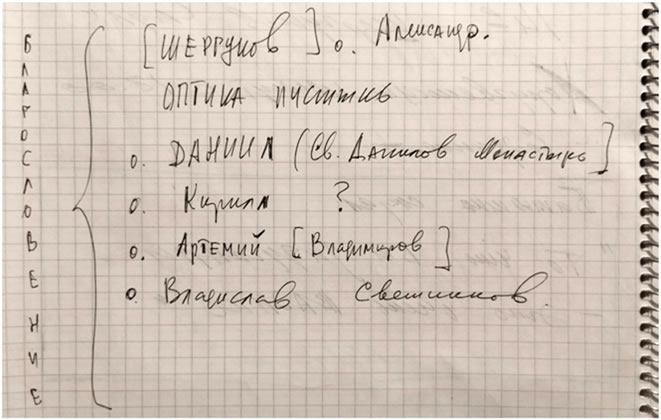 БЛАГОСЛОВЕНИЕ
[ШЕРГУНОВ] о. Александр.
ОПТИКА ПУСТИНЬ
о. ДАНИИЛ (Св. Данилов Монастырь]
о. Кирилл ?
о. Артемий [Владимиров]
о. Владислав Свешников.